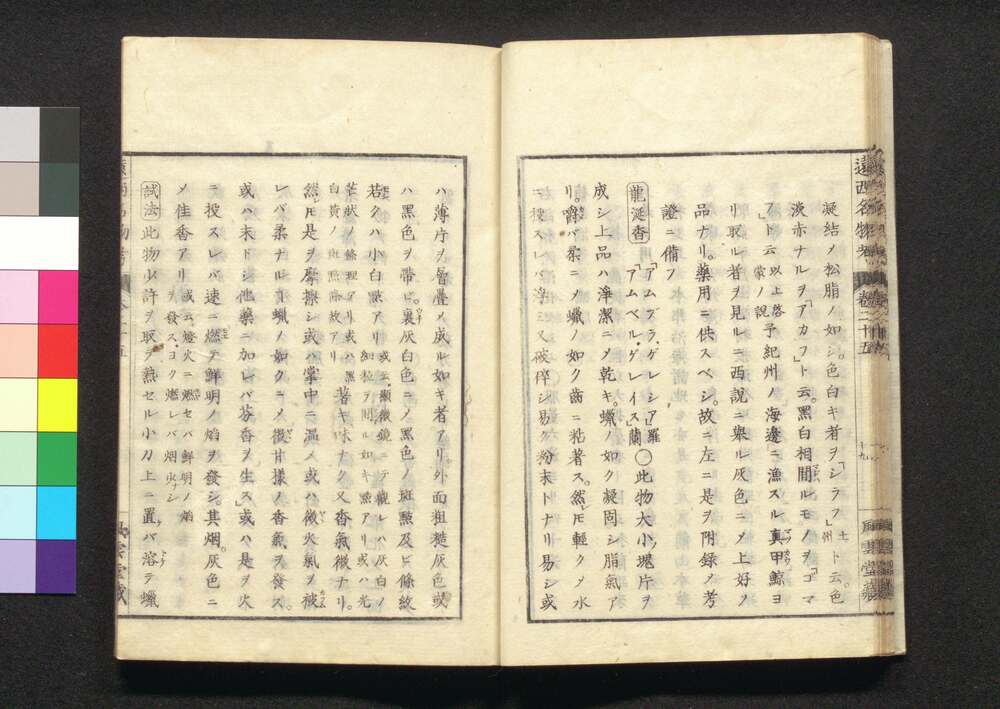 遠西名物考 卷二十五
十九
風雲堂藏
凝結ノ松脂ノ如シ色白キ者ヲ「シラフ」土州ト云。色
淡赤ナルヲ「アカフ」ト云。黑白相間ルモノヲ「ゴマ
フ」ト云 以上啓蒙ノ說 予紀州ノ海邊ニ漁スル真甲鯨ヨ
リ取ル者ヲ見ルニ西說ニ擧ル灰色ニメ上好ノ
品ナリ。藥用ニ供スベシ。故ニ左ニ是ヲ附録メ考
證ニ備フ
龍涎香 「アムブラ、ゲレシア」羅 「アムベル・ゲレイス」蘭 〇此物大小塊片ヲ
成シ上品ハ淨潔ニメ乾キ。蠟ノ如ク凝固シ脂氣ア
リ。嚼バ柔ニメ蠟ノ如ク齒ニ粘著ス。然𪜈輕クメ水
ニ投スレバ浮ミ又破碎シ易ク紛末トナリ易シ或
ハ薄片ヲ層疊メ成ル如キ者アリ外面粗糙灰色或
ハ黑色ヲ帶ビ。裏灰白色ニメ黑色ノ斑㸃及ビ條紋
若クハ小白㸃アリ 或云顯微鏡ニテ觀レハ灰白ノ 細粒ヲ間ル如キ㸃アリ或ハ光
ノ條理アリ或ハ黑 白黄ノ斑 アリ 著キ味ナク又香氣微ナリ。
然𪜈是ヲ摩擦シ或ハ掌中ニ温メ或ハ微火氣ヲ被
レバ柔ナル丁蠟ノ如クニメ微甘樣ノ香氣ヲ發ス。
或ハ末トシ他藥ニ加レバ芬香ヲ生ス」或ハ是ヲ火
ニ投スレバ速ニ燃テ鮮明ノ焰ヲ發シ。其烟。灰色ニ
メ佳香アリ 或云燈火ニ燃セバ鮮明ノ焰 ヲ發ス・ヨク燃レバ烟少ナシ
試法 此物少許ヲ取テ熱セル小刀上ニ置バ溶テ蠟